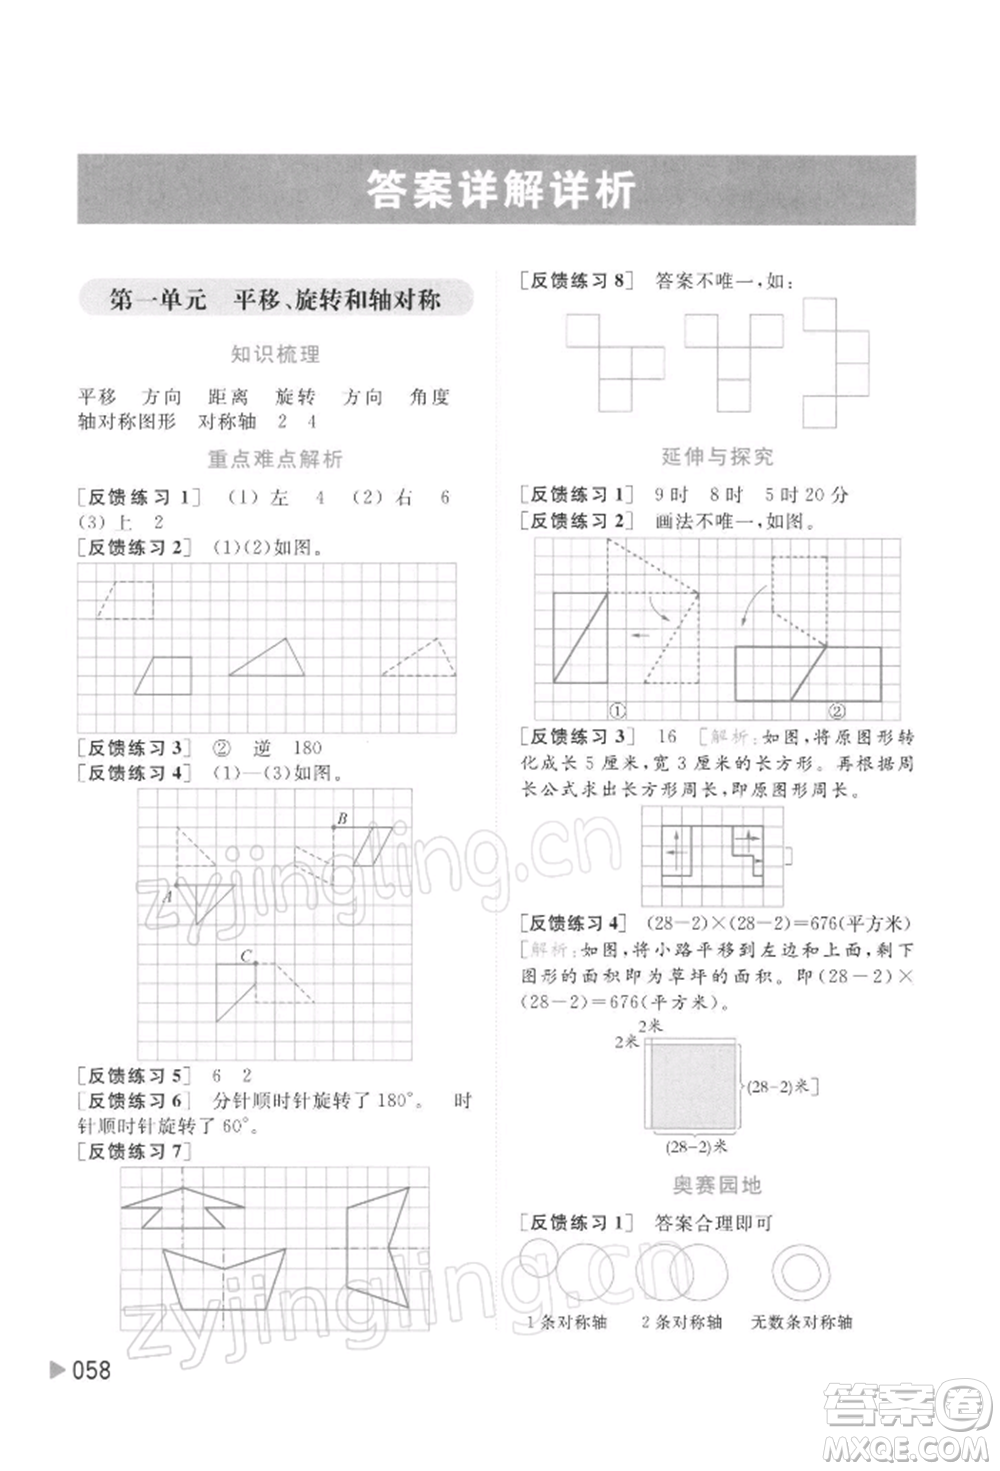 答案详解详析
第一单元 平移、旋转和轴对称
知识梳理
平移 方向 距离 旋转 方向 角度
轴对称图形 对称轴 2 4
重点难点解析
[反馈练习 1] (1)左 4 (2)右 6
(3)上 2
[反馈练习 2] (1)(2)如图。
[反馈练习 3] ② 逆 180
[反馈练习 4] (1)—(3)如图。
B
A
C
[反馈练习 5] 6 2
[反馈练习 6] 分针顺时针旋转了 180°。 时
针顺时针旋转了 60°。
[反馈练习 7]
058
[反馈练习 8] 答案不唯一,如:
延伸与探究
[反馈练习 1] 9时 8时 5时20分
[反馈练习 2] 画法不唯一,如图。
① ②
[反馈练习 3] 16 [解析:如图,将原图形转
化成长 5 厘米,宽 3 厘米的长方形。再根据周
长公式求出长方形周长,即原图形周长。
[反馈练习 4] (28-2)×(28-2)=676(平方米)
[解析:如图,将小路平移到左边和上面,剩下
图形的面积即为草坪的面积。即(28-2)×
(28-2)=676(平方米)。
2米
2米
(28-2)米]
(28-2)米
奥赛园地
[反馈练习 1] 答案合理即可
1条对称轴 2条对称轴 无数条对称轴
zyjingling.cn
zyjingling.cn
答案圈
MXQE.COM